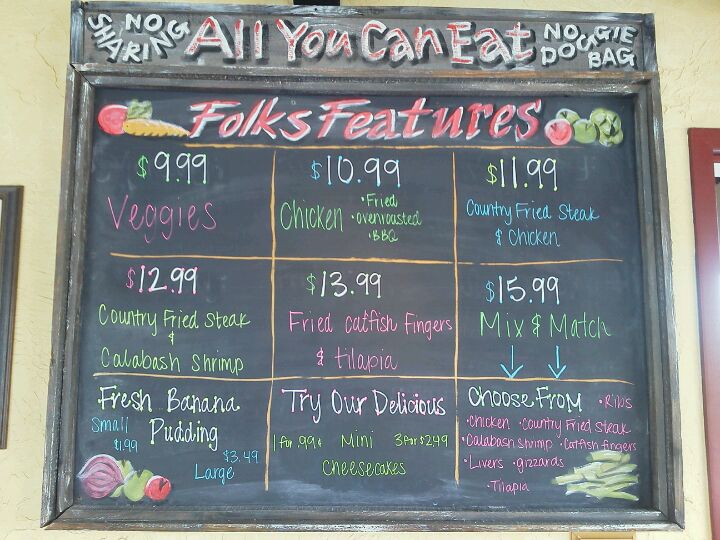 NO SHARING
All You Can Eat
NO DOGGIE BAG
Folks Features
$9.99
Veggies
$10.99
Chicken
•Fried
•ovenroasted
•BBQ
$11.99
Country Fried Steak
& Chicken
$12.99
Country Fried Steak
&
Calabash Shrimp
$13.99
Fried catfish Fingers
& tilapia
$15.99
Mix & Match
Fresh Banana
Pudding
Small
$1.99
$3.49
Large
Try Our Delicious
1 for .99¢ Mini 3 for $2.49
Cheesecakes
Choose From •Ribs
•Chicken •Country Fried Steak
•Calabash Shrimp •Catfish fingers
•Livers •gizzards
•Tilapia